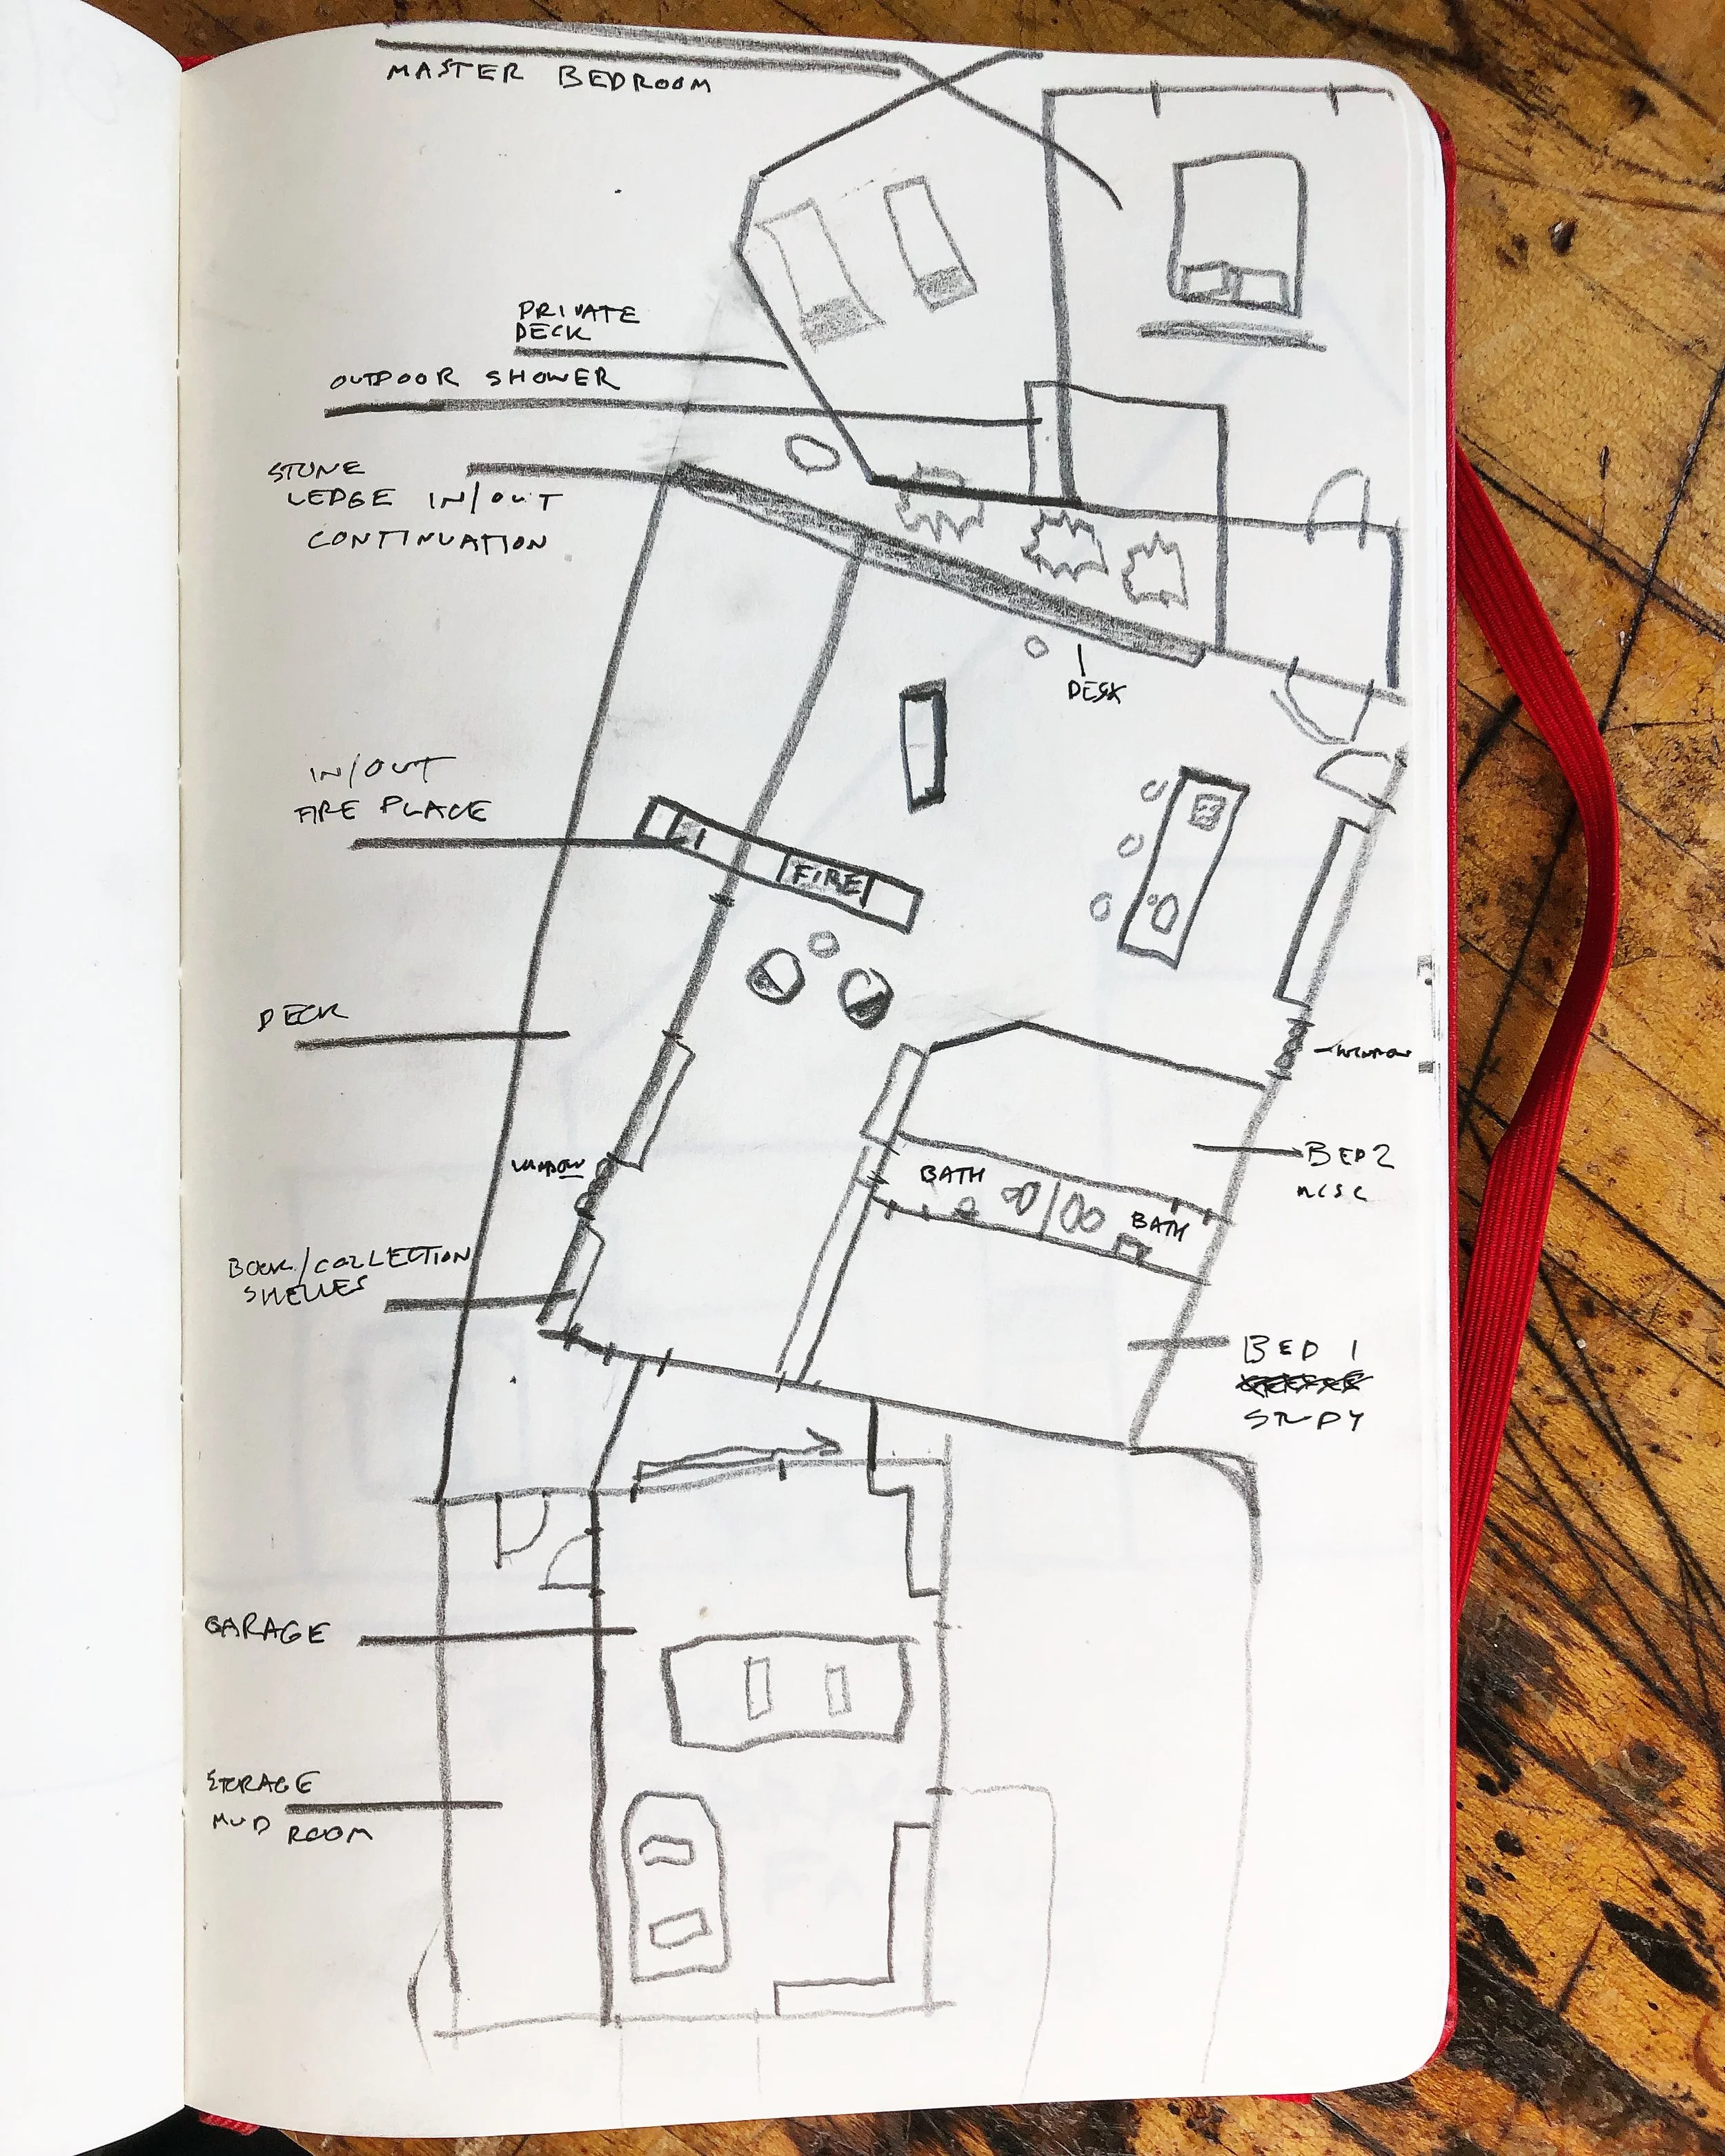 MASTER BEDROOM
PRIVATE
DECK
OUTDOOR SHOWER
STONE
LEDGE IN/OUT
CONTINUATION
DESK
IN/OUT
FIRE PLACE
FIRE
DECK
WINDOW
WINDOW
BED 2
BATH
BATH
BOOK/COLLECTION
SHELVES
BED 1
STUDY
GARAGE
STORAGE
MUD ROOM